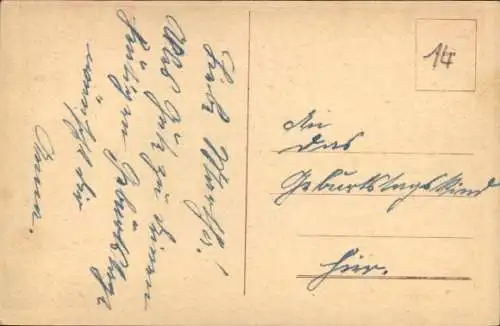 Liebe Martha!
Alles Gute zu Deinem
heutigen Geburtstage
wünscht dir
Anna.
14
An
das
Geburtstagskind
hier.